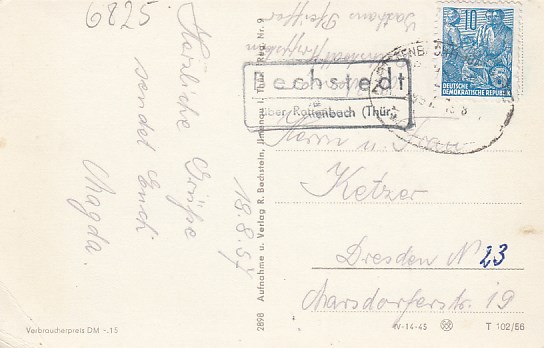 6825.
Herzliche Grüße
sendet Euch
Magda.
18.8.57
2898 Aufnahme u. Verlag R. Bechstein, Ilmenau i. Thür. Reg. Nr. 9
Gasthaus Pfeiffer
Bechstedt
über Rottenbach (Thür)
10
DEUTSCHE
DEMOKRATISCHE REPUBLIK
Herrn u. Frau
Ketzer
Dresden N 23
Marsdorferstr. 19
Verbraucherpreis DM -.15
IV-14-45
T 102/56